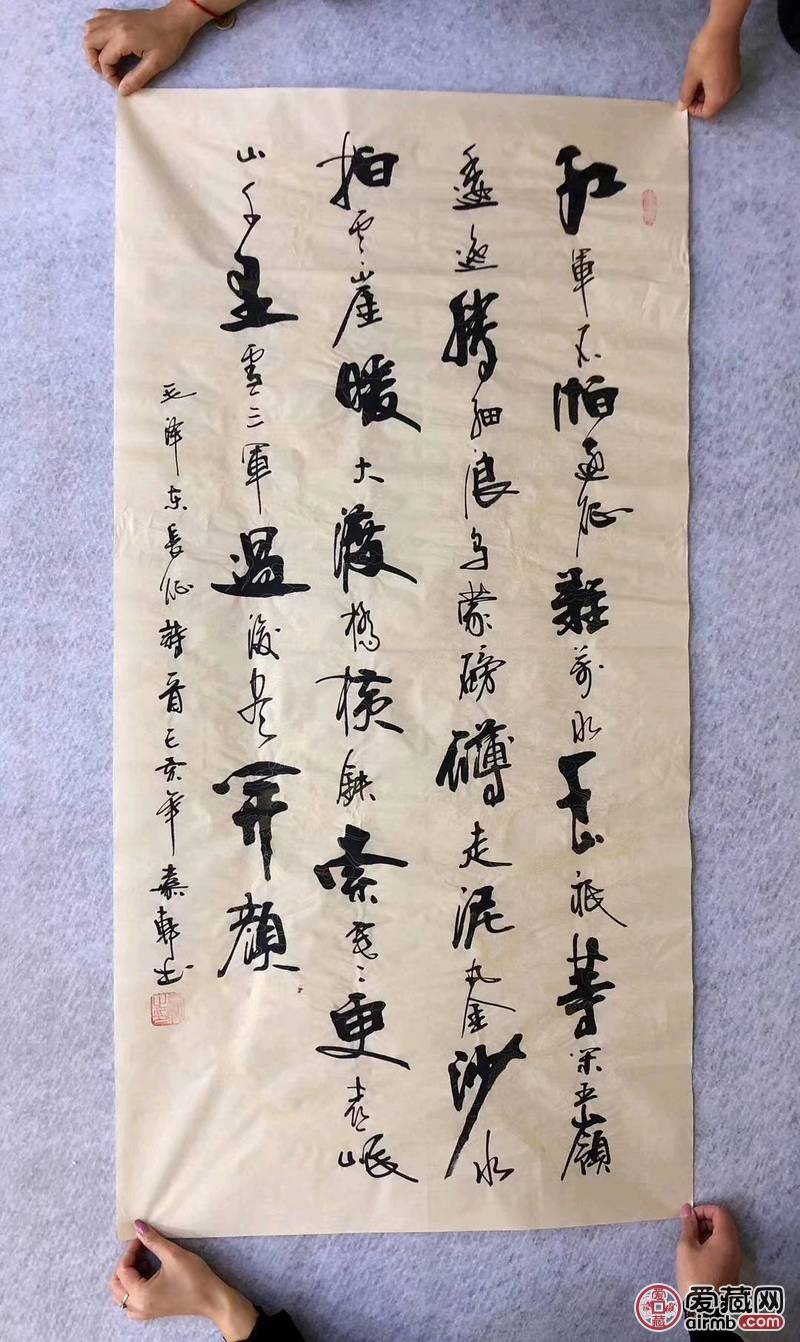 红軍不怕遠征難萬水千山祇等闲五嶺
逶迤騰細浪乌蒙磅礴走泥丸金沙水
拍雲崖暖大渡橋横鉄索寒更喜岷
山千里雪三軍過後尽開顔
毛泽东長征詩一首己亥年 軒书
爱藏网
airmb.com